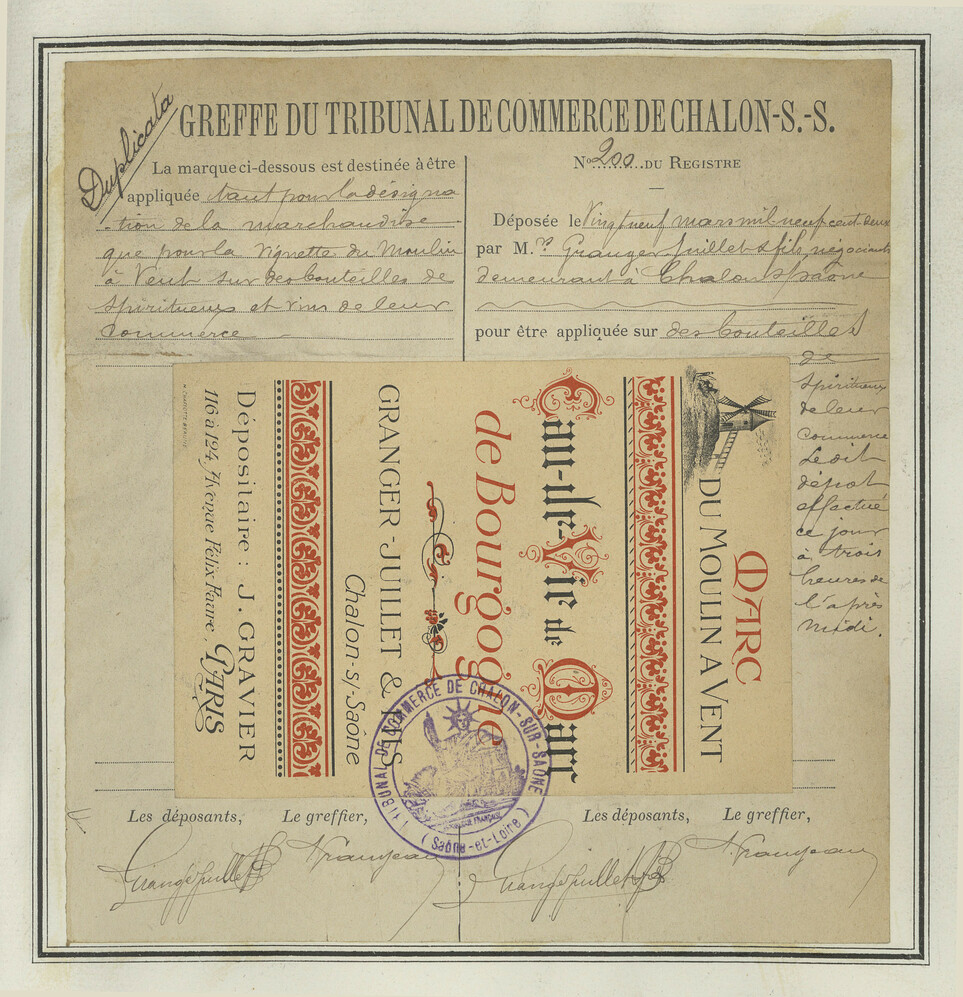 Duplicata
GREFFE DU TRIBUNAL DE COMMERCE DE CHALON-S.-S.
La marque ci-dessous est destinée à être
appliquée tant pour la désigna
-tion de la marchandise
que pour la vignette du Moulin
à Vent sur des bouteilles de
Spiritueux et vins de leur
Commerce
No 200 DU REGISTRE
Déposée le Vingt neuf mars mil neuf cent deux
par M.rs Granger Juillet & fils, négociants
demeurant à Chalon s/ Saône
pour être appliquée sur des bouteilles
de
Spiritueux
de leur
Commerce
Le dit
dépôt
effectué
ce jour
à trois
heures de
l'après
Midi.
MARC
DU MOULIN A VENT
Eau-de-Vie de Marc
de Bourgogne
GRANGER-JUILLET & FILS
Chalon-s/-Saône
Dépositaire : J. GRAVIER
116 à 124, Avenue Félix Faure. PARIS
TRIBUNAL DE COMMERCE DE CHALON-SUR-SAONE
RÉPUBLIQUE FRANÇAISE
(Saône-et-Loire)
Les déposants, Le greffier,
Granger Juillet & fils
Les déposants, Le greffier,
Granger Juillet & fils